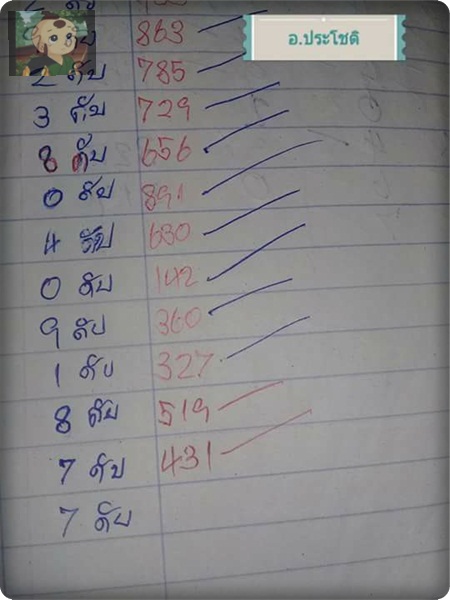 อ.ประโชติ
ดับ 863
2 ดับ 785
3 ดับ 729
8 ดับ 656
0 ดับ 891
4 ดับ 630
0 ดับ 142
9 ดับ 360
1 ดับ 327
8 ดับ 519
7 ดับ 431
7 ดับ